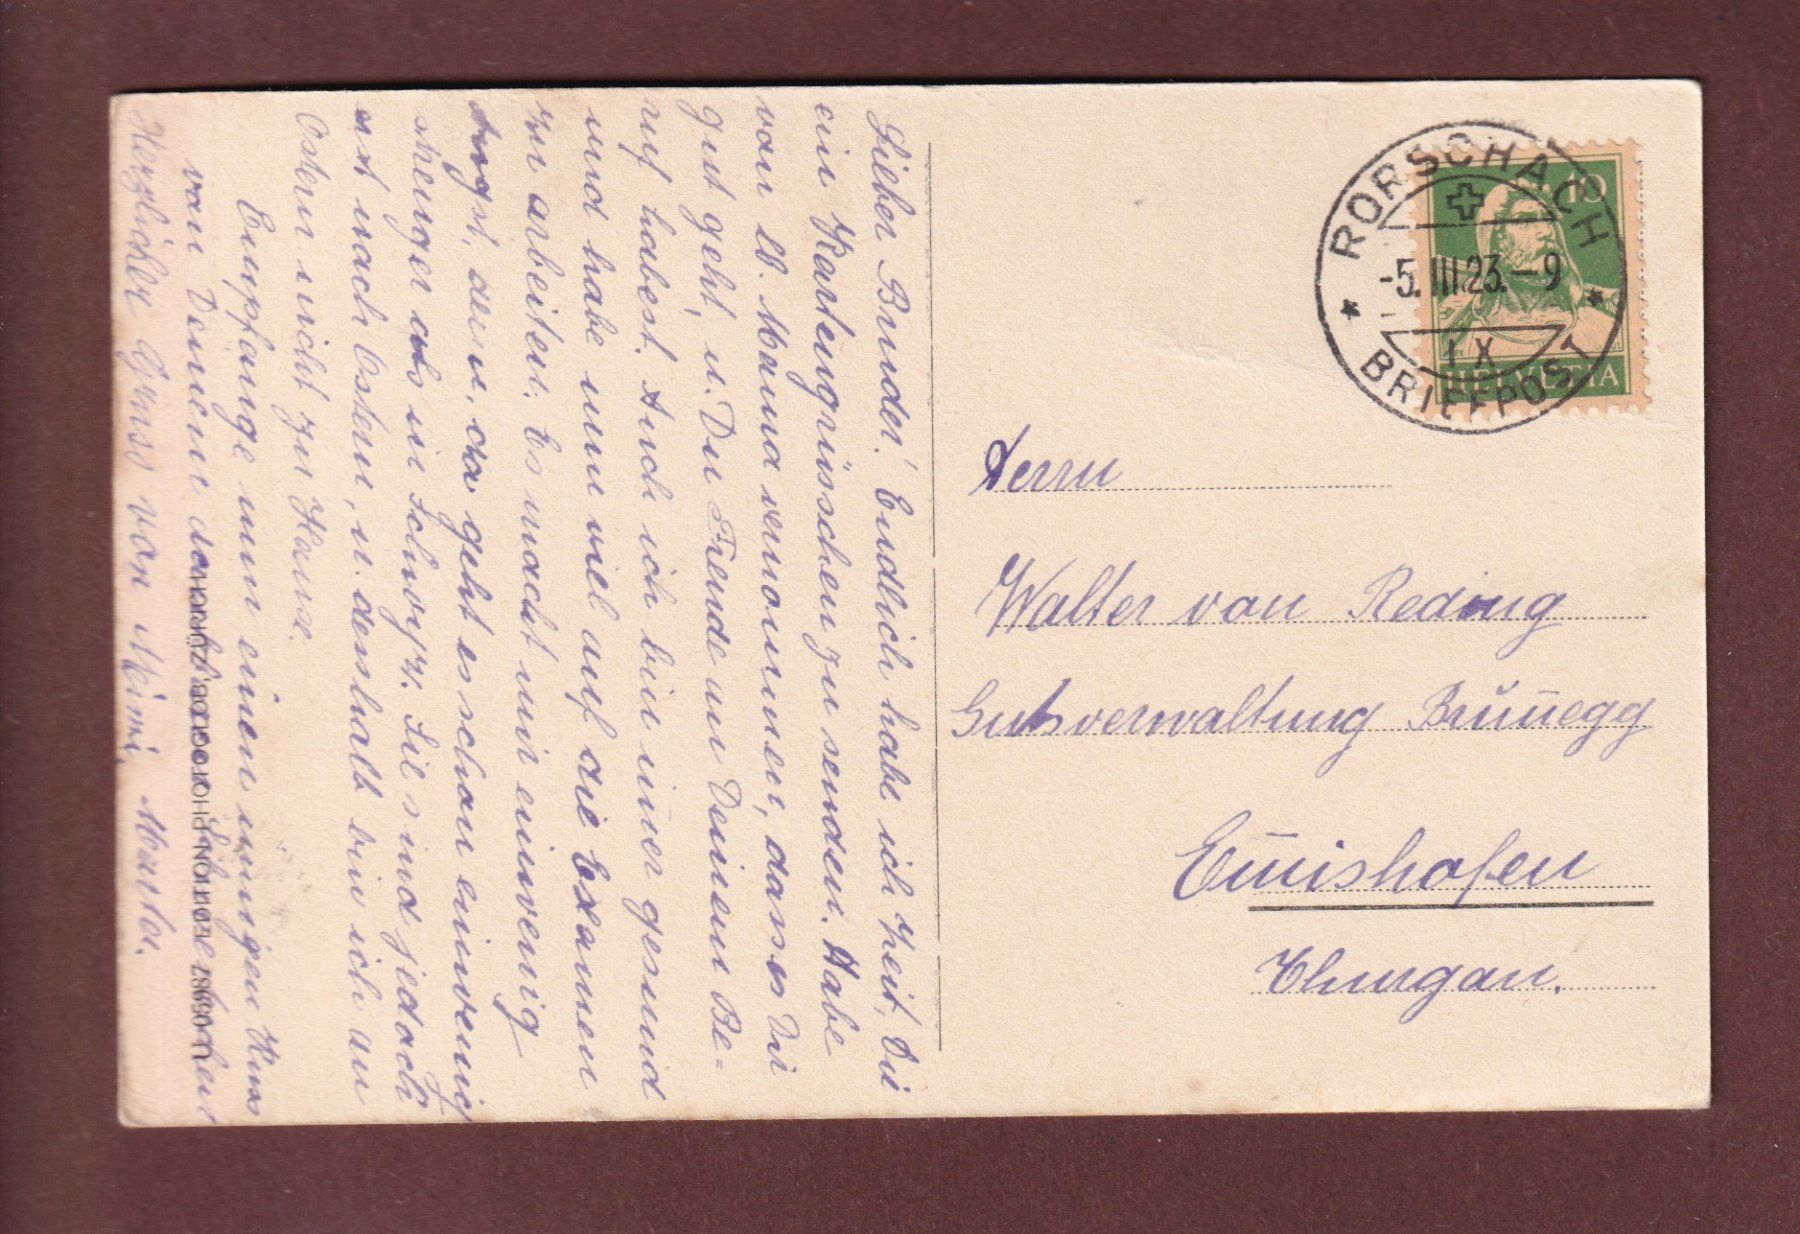 Lieber Bruder! Endlich habe ich Zeit, Dir
ein Kartengrüsschen zu senden. Habe
von lb. Mama vernommen, dass es Dir
gut geht, u. Du Freude an Deinem Be=
ruf habest. Auch ich bin im̄er gesund
und habe nun viel auf die Examen
zu arbeiten. Es macht mir einwenig
Angst, denn, da geht es schon einwenig
strenger als in Schwyz. Sie sind jedoch
erst nach Ostern, u. deshalb bin ich an
Ostern nicht zu Hause.
Empfange nun einen innigen Kuss
von Deiner
Herzlicher Gruss von Mimi, Martha.
EDITION PHOTOGLOB ZÜRICH
RORSCHACH
-5.III.23.-9
IX
BRIEFPOST
10
HELVETIA
Herrn
Walter von Reding
Gutsverwaltung Brun̄egg
Em̄ishofen
Thurgau.